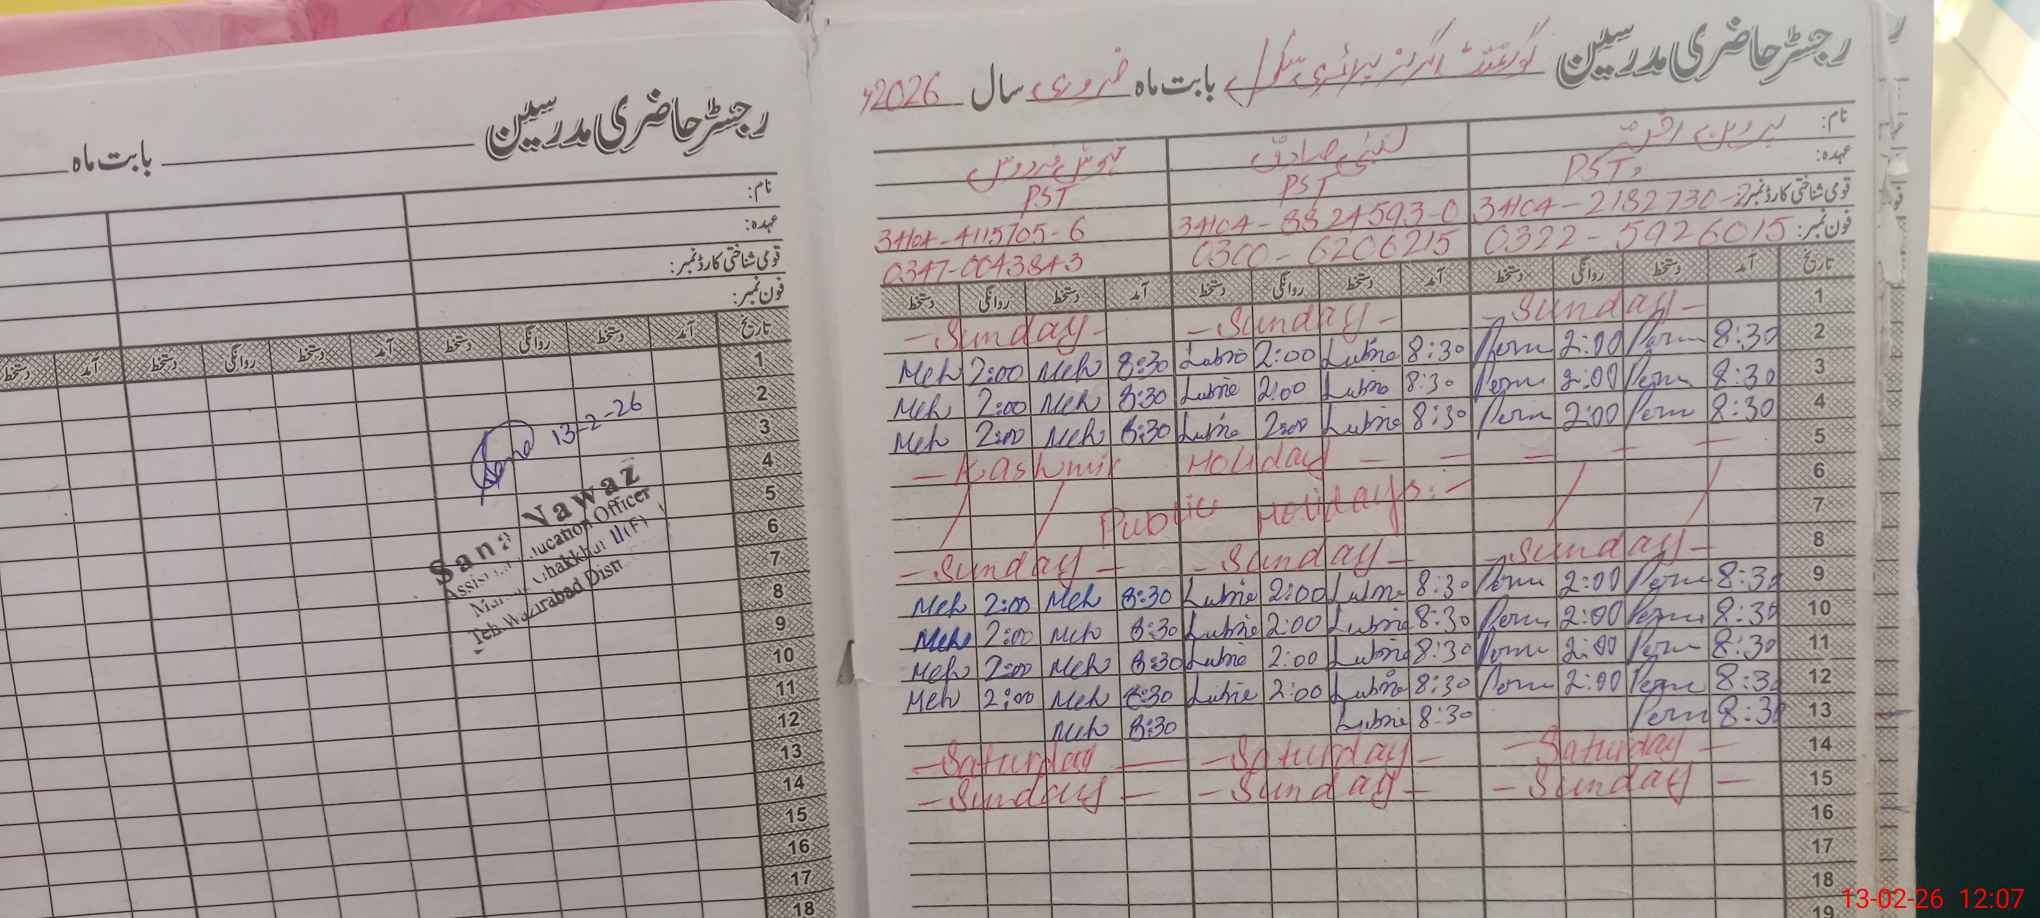 رجسٹر حاضری مدرسین گورنمنٹ گرلز پرائمری سکول بابت ماہ فروری سال 2026ء
نام: پروین اختر لبنیٰ صادق مہوش فردوس
عہدہ: PST, PST PST
قومی شناختی کارڈ نمبر: 34104-2182730-2 34104-8824593-0 34104-4115705-6
فون نمبر: 0322-5926015 0300-6206215 0347-0043843
تاریخ آمد دستخط روانگی دستخط آمد دستخط روانگی دستخط آمد دستخط روانگی دستخط
1 -Sunday- -Sunday- -Sunday-
2 8:30 Perm 2:00 Perm 8:30 Lubna 2:00 Lubna 8:30 Meh 2:00 Meh
3 8:30 Perm 2:00 Perm 8:30 Lubna 2:00 Lubna 8:30 Meh 2:00 Meh
4 8:30 Perm 2:00 Perm 8:30 Lubna 2:00 Lubna 8:30 Meh 2:00 Meh
5 - Kashmir Holiday - - - - -
6
7 Public Holidays:-
8 -Sunday- -Sunday- -Sunday-
9 8:30 Perm 2:00 Perm 8:30 Lubna 2:00 Lubna 8:30 Meh 2:00 Meh
10 8:30 Perm 2:00 Perm 8:30 Lubna 2:00 Lubna 8:30 Meh 2:00 Meh
11 8:30 Perm 2:00 Perm 8:30 Lubna 2:00 Lubna 8:30 Meh 2:00 Meh
12 8:30 Perm 2:00 Perm 8:30 Lubna 2:00 Lubna 8:30 Meh 2:00 Meh
13 8:30 Perm 8:30 Lubna 8:30 Meh
14 -Saturday- -Saturday- -Saturday-
15 -Sunday- -Sunday- -Sunday-
16
17
18
19
رجسٹر حاضری مدرسین بابت ماہ
نام:
عہدہ:
قومی شناختی کارڈ نمبر:
فون نمبر:
تاریخ آمد دستخط روانگی دستخط آمد دستخط روانگی دستخط آمد دستخط
1
2
3
4
5
6
7
8
9
10
11
12
13
14
15
16
17
18
13-2-26
Sana Nawaz
Assistant Education Officer
II(F)
Teh. Wazirabad Distt
13-02-26 12:07